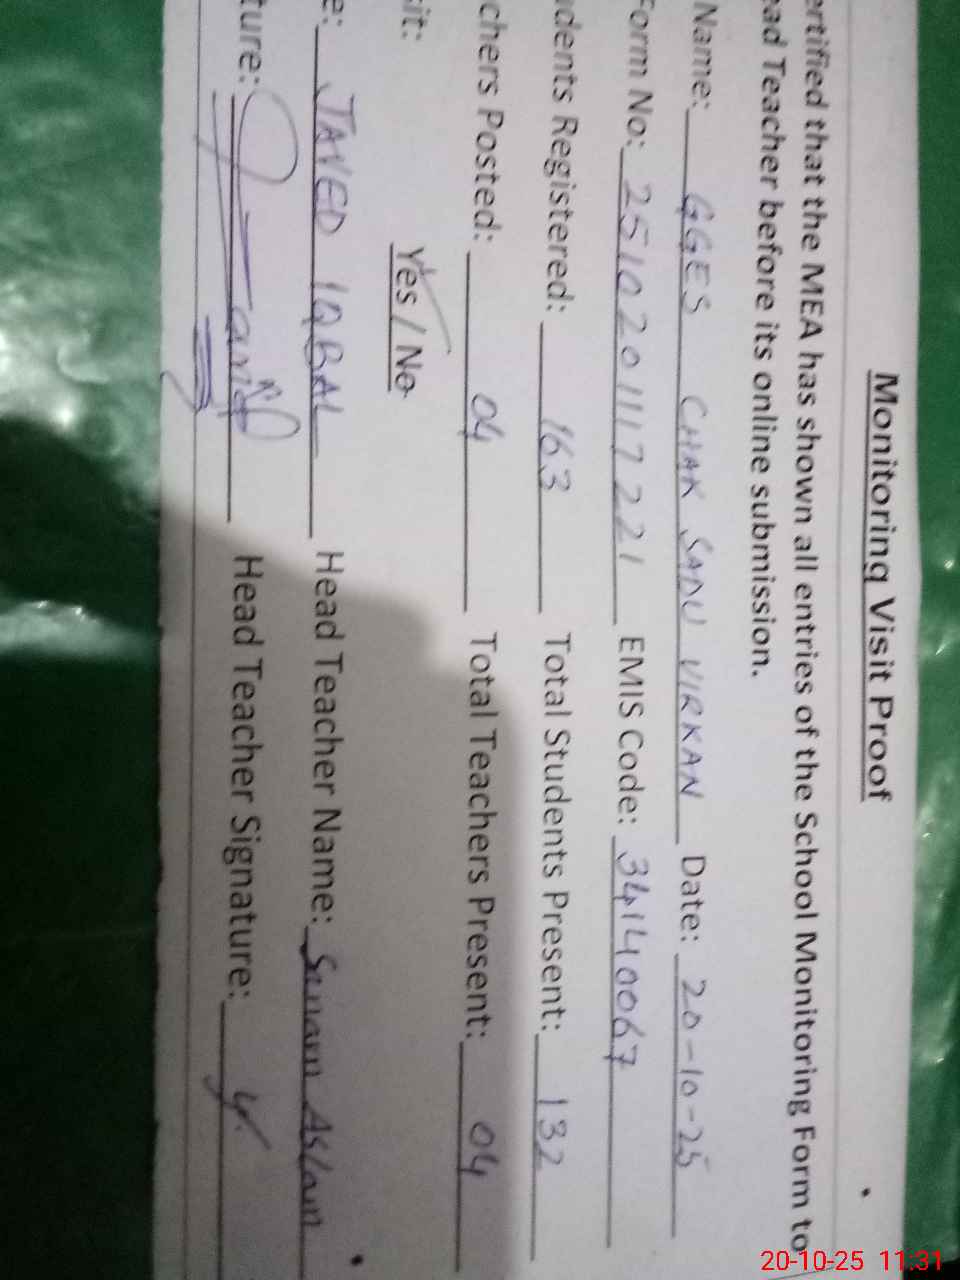 Monitoring Visit Proof
ertified that the MEA has shown all entries of the School Monitoring Form to
ead Teacher before its online submission.
Name: GGES CHAK SADU VIRKAN Date: 20-10-25
Form No: 2510201117221 EMIS Code: 34140067
udents Registered: 163 Total Students Present: 132
chers Posted: 04 Total Teachers Present: 04
sit: Yes / No
e: JAVED IQBAL Head Teacher Name: Aslam
ture: Head Teacher Signature:
20-10-25 11:31